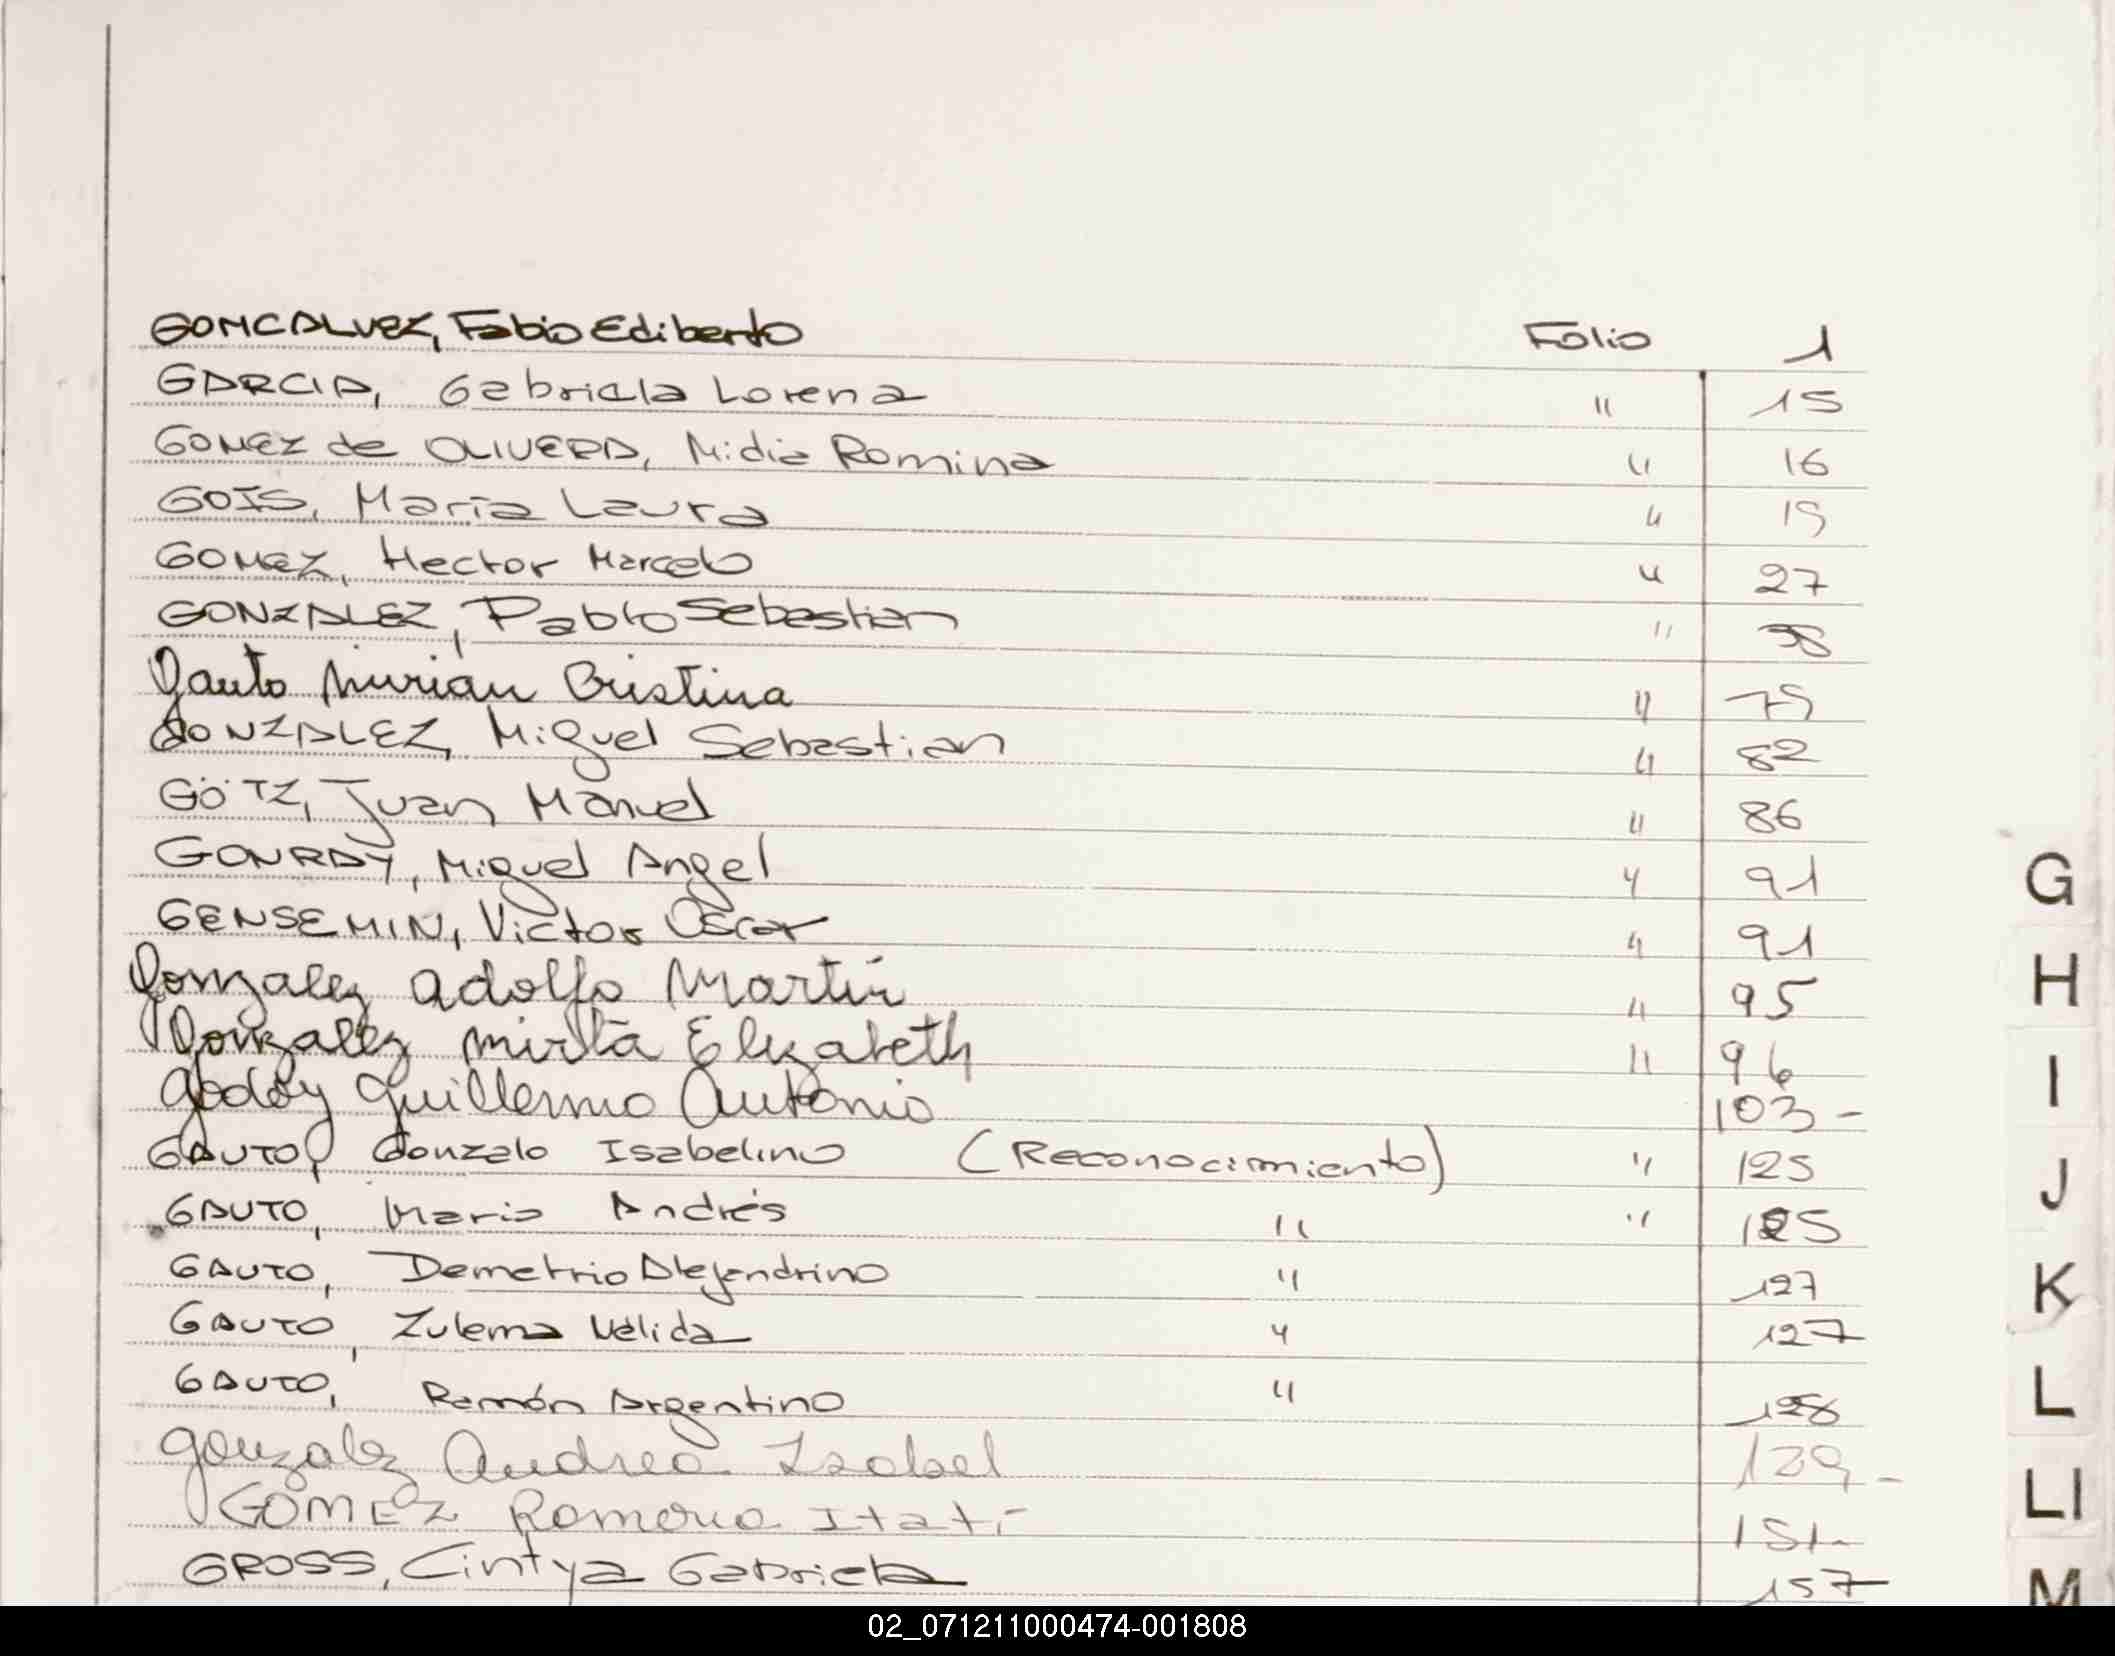 GOMCALVEZ, Fabio Ediberto Folio 1
GARCIA, Gabriela Lorena " 15
GOMEZ de OLIVERA, Midia Romina " 16
GOIS, María Laura " 19
GOMEZ, Hector Marcelo " 27
GONZALEZ, Pablo Sebastian " 38
Gauto Mirian Cristina "
GONZALEZ, Miguel Sebastian " 82
GÖTZ, Juan Manuel " 86
GONRAY, Miguel Angel " 91
GENSEMIN, Victor Oscar " 91
Gonzalez Adolfo Martín " 95
Gonzalez Mirta Elizabeth " 96
Godoy Guillermo Antonio 103-
GAUTO, Gonzalo Isabelino (Reconocimiento) " 125
GAUTO, Mario Andrés " " 125
GAUTO, Demetrio Alejandrino " 127
GAUTO, Zulema Nélida " 127
GAUTO, Ramón Argentino " 128
Gonzalez Andrea Isabel 139-
GOMEZ Romina Itatí 151-
GROSS, Cintya Gabriela 157
G
H
I
J
K
L
Ll
M
02_071211000474-001808